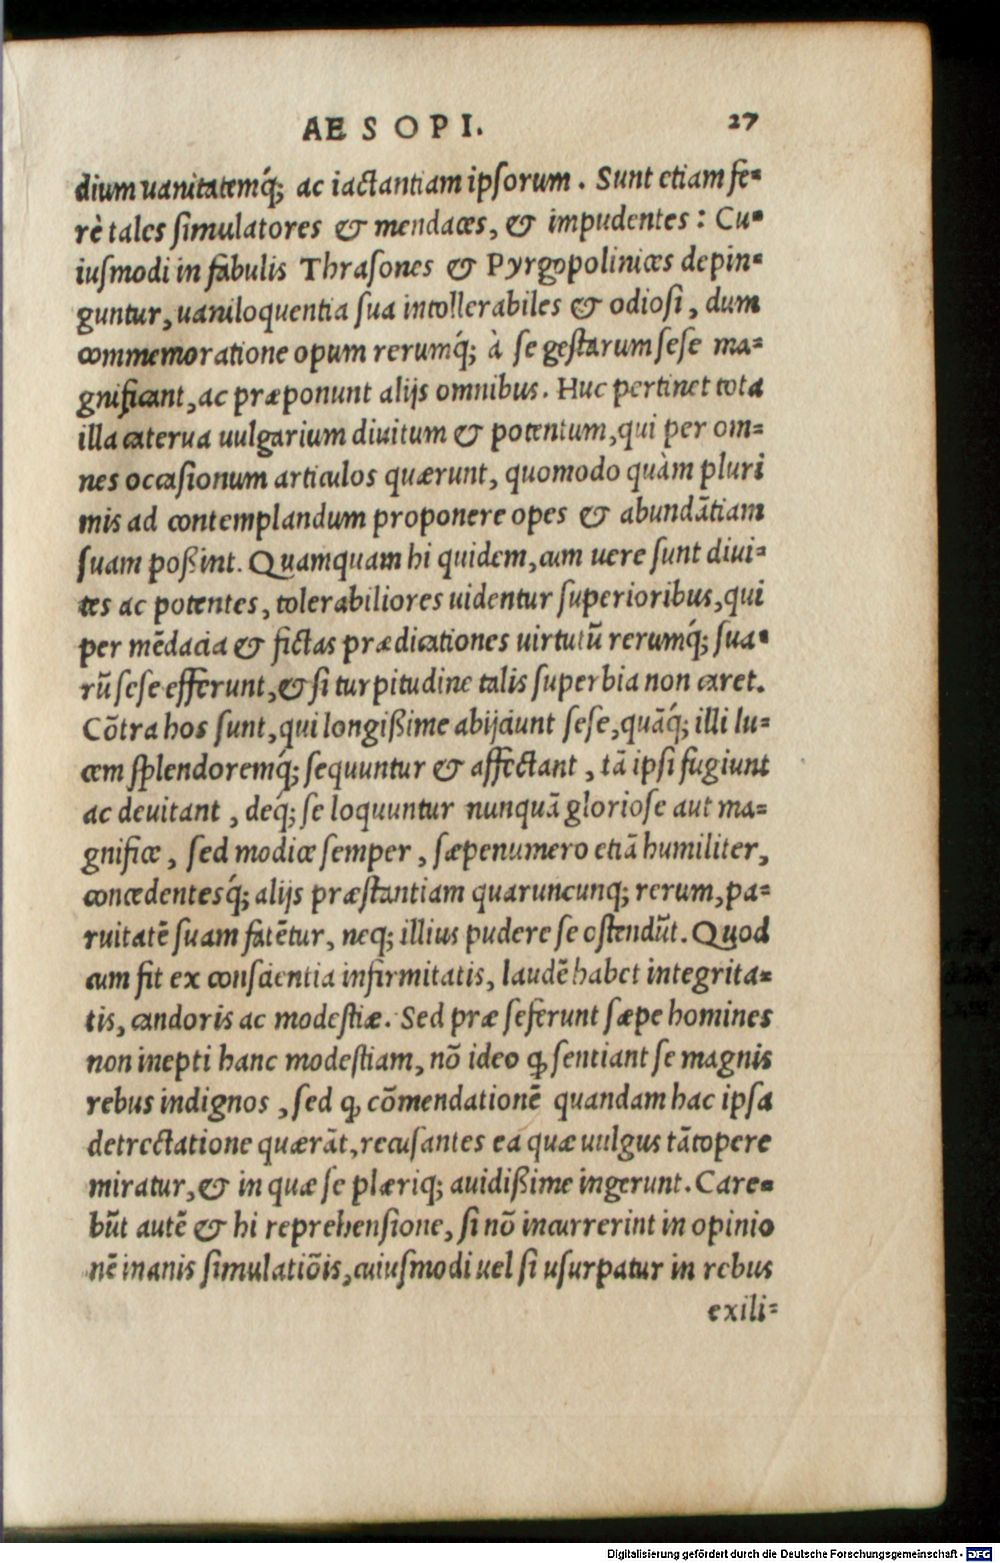 AESOPI. 27
dium uanitatemq́; ac iactantiam ipsorum. Sunt etiam fe-
rè tales simulatores & mendaces, & impudentes: Cu-
iusmodi in fabulis Thrasones & Pyrgopolinices depin-
guntur, uaniloquentia sua intollerabiles & odiosi, dum
commemoratione opum rerumq́; à se gestarum sese ma-
gnificant, ac præponunt alijs omnibus. Huc pertinet tota
illa caterua uulgarium diuitum & potentum, qui per om-
nes occasionum articulos quærunt, quomodo quàm pluri
mis ad contemplandum proponere opes & abundãtiam
suam poßint. Quamquam hi quidem, cum uere sunt diui-
tes ac potentes, tolerabiliores uidentur superioribus, qui
per mẽdacia & fictas prædicationes uirtutũ rerumq́; sua-
rũ sese efferunt, & si turpitudine talis superbia non caret.
Cõtra hos sunt, qui longißime abijciunt sese, quãq́; illi lu-
cem splendoremq́; sequuntur & affectant, tã ipsi fugiunt
ac deuitant, deq́; se loquuntur nunquã gloriose aut ma-
gnifice, sed modice semper, sæpenumero etiã humiliter,
concedentesq́; alijs præstantiam quaruncunq; rerum, pa-
ruitatẽ suam fatẽtur, neq; illius pudere se ostendũt. Quod
cum fit ex conscientia infirmitatis, laudẽ habet integrita-
tis, candoris ac modestiæ. Sed præ seferunt sæpe homines
non inepti hanc modestiam, nõ ideo ꝙ sentiant se magnis
rebus indignos, sed ꝙ cõmendationẽ quandam hac ipsa
detrectatione quærãt, recusantes ea quæ uulgus tãtopere
miratur, & in quæ se plæriq; auidißime ingerunt. Care-
bũt autẽ & hi reprehensione, si nõ incurrerint in opinio
nẽ inanis simulatiõis, cuiusmodi uel si usurpatur in rebus
exili-
Digitalisierung gefördert durch die Deutsche Forschungsgemeinschaft - DFG